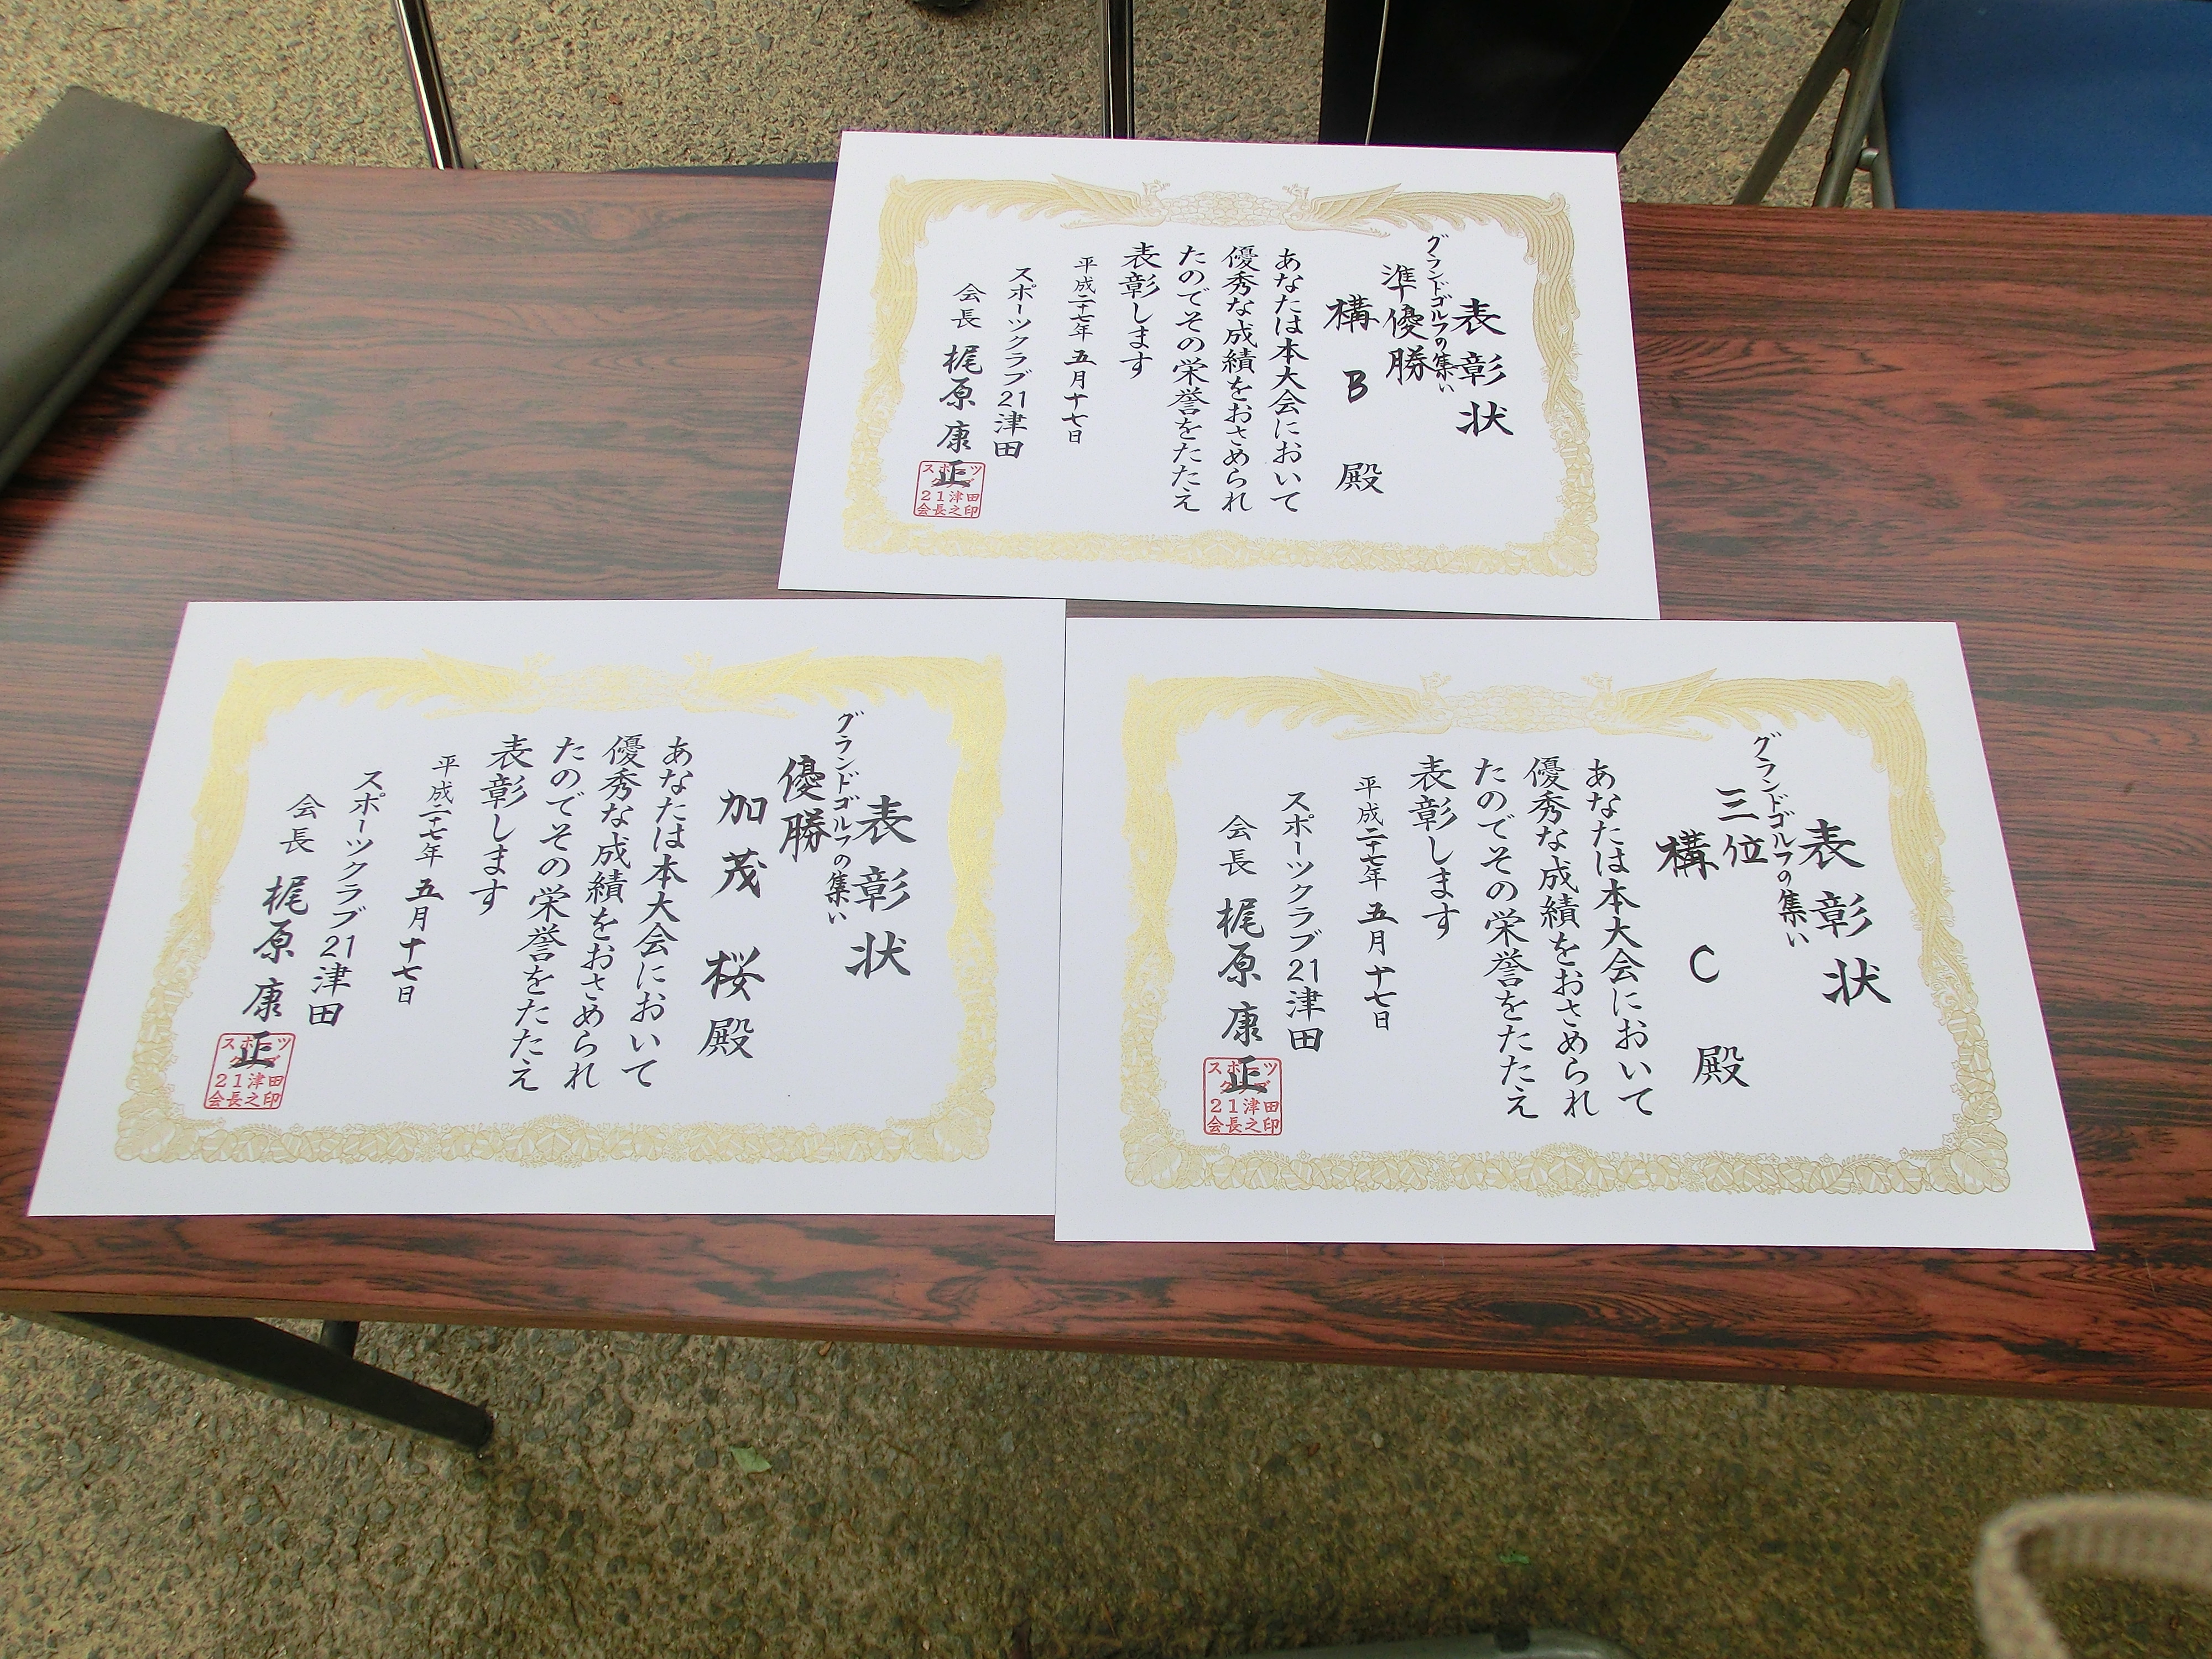 表彰状
グランドゴルフの集い
準優勝
構 B 殿
あなたは本大会において
優秀な成績をおさめられ
たのでその栄誉をたたえ
表彰します
平成二十七年 五月十七日
スポーツクラブ21津田
会長 梶原康正
スポーツ
クラブ
21津田
会長之印
表彰状
グランドゴルフの集い
優勝
加茂 桜 殿
あなたは本大会において
優秀な成績をおさめられ
たのでその栄誉をたたえ
表彰します
平成二十七年 五月十七日
スポーツクラブ21津田
会長 梶原康正
スポーツ
クラブ
21津田
会長之印
表彰状
グランドゴルフの集い
三位
構 C 殿
あなたは本大会において
優秀な成績をおさめられ
たのでその栄誉をたたえ
表彰します
平成二十七年 五月十七日
スポーツクラブ21津田
会長 梶原康正
スポーツ
クラブ
21津田
会長之印